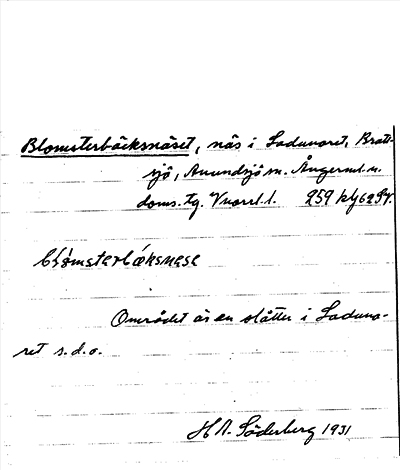 Blomsterbäcksnäset, näs i Ladunoret, Bratt-
sjö, Anundsjö sn. Ångerml. n.
doms. tg. Vnorrl. l. 259
blomsterbæksnese
Området är en slåtter i Laduno-
ret s.d.o.
H A. Söderberg 1931